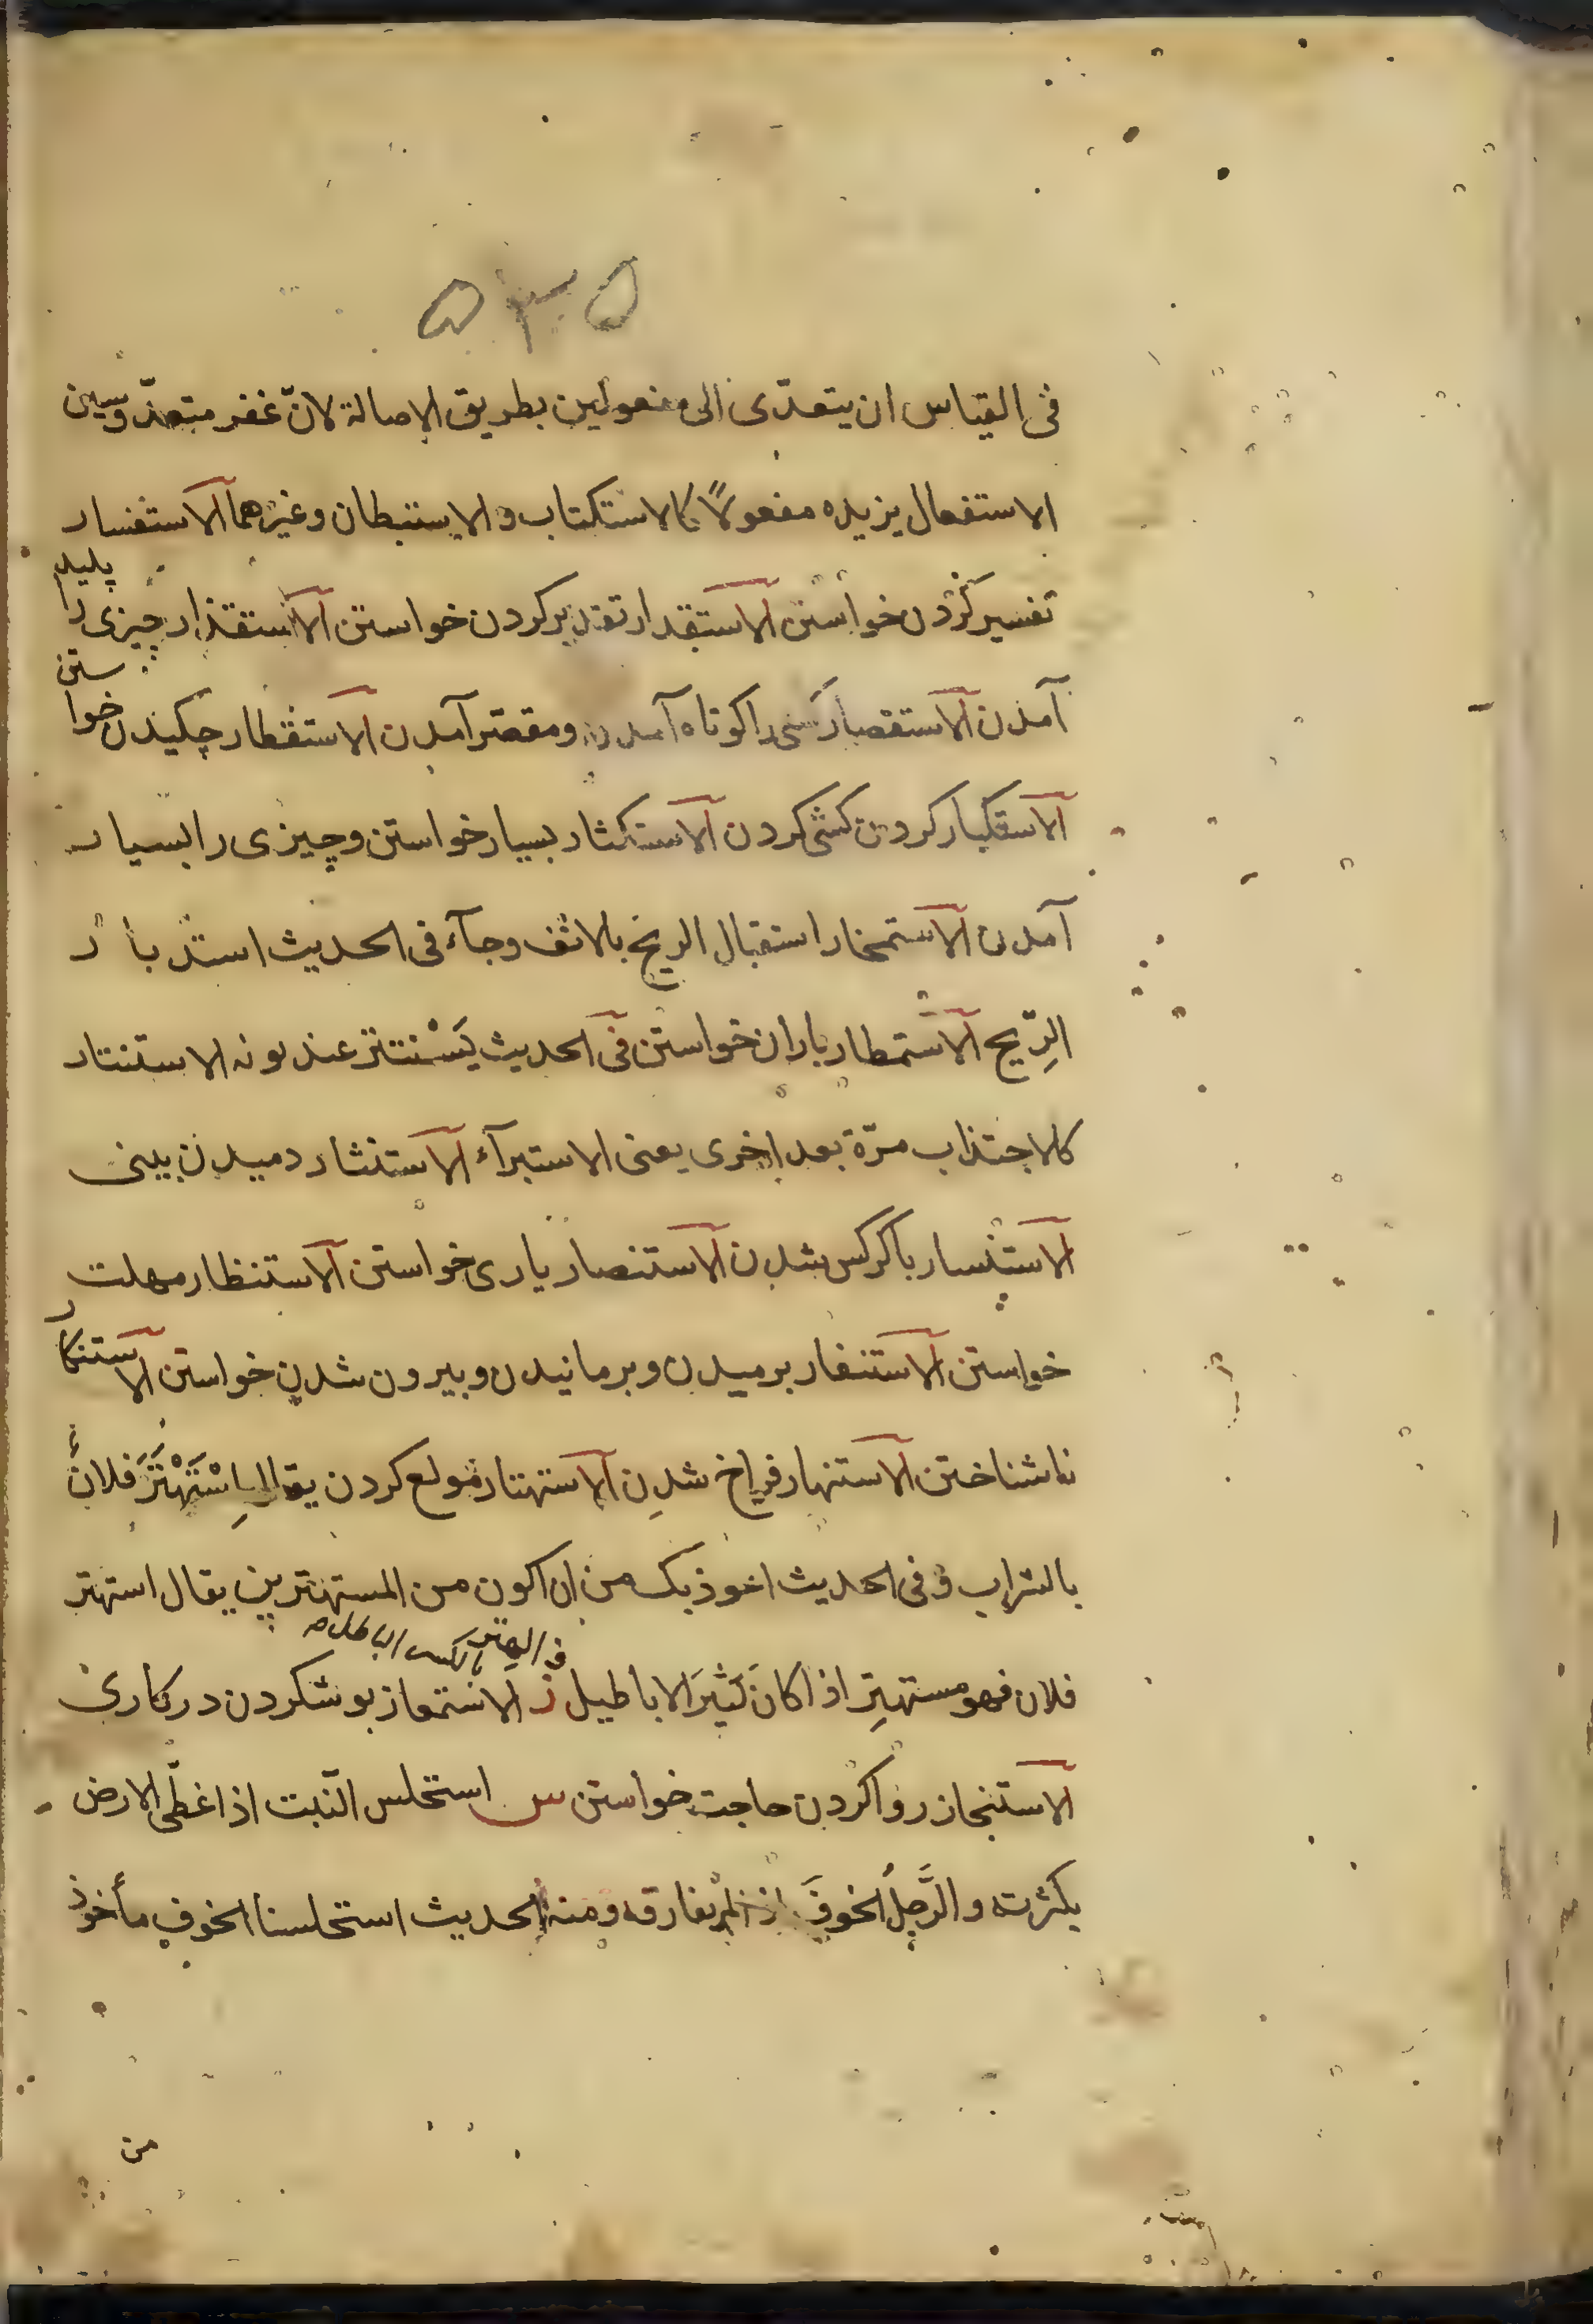 ۵۳۵
فی القیاس ان یتعدّی الی مفعولین بطریق الاصالة لانّ غفر متعدّ وسین
الاستفعال یزیده مفعولاً کالاستکتاب والاستبطان وغیرهما الاستفسار
تفسیر کردن خواستن الاستقدار تقدیر کردن خواستن الاستقذار چیزی را پلید
آمدن الاستقصار کسی را کوتاه آمدن ومقصّر آمدن الاستقطار چکیدن خواستن
الاستکبار کردن کشی کردن الاستکثار بسیار خواستن وچیزی را بسیار
آمدن الاستمخار استقبال الریح بالانف وجآء فی الحدیث استدبار
الرِّیح الاستمطار باران خواستن فی الحدیث یَسْتنتر عند بوله الاستنتار
کالاجتذاب مرّة بعد اخری یعنی الاستبرآء الاستنثار دمیدن بینی
الاستنسار با کرکس شدن الاستنصار یاری خواستن الاستنظار مهلت
خواستن الاستنفار برمیدن وبرمانیدن وبیرون شدن خواستن الاستنکار
ناشناختن الاستنهار فراخ شدن الاستهتار مولع کردن یقال اِسْتَهْتَرَ فلانٌ
بالشراب وفی الحدیث اعوذ بک من ان اکون من المستهترین یقال استهتر
فلان فهو مستهتِر اذا کانَ کَثیرَ الاباطیل ز الاستمعاز بوش کردن در کاری
الاستنجاز روا کردن حاجت خواستن س استحلس النّبت اذا غطّی الارض
بکثرته والرَّجلُ الخوفَ اذا لم یفارقه ومنه الحدیث استحلسنا الخوف مأخوذ
من